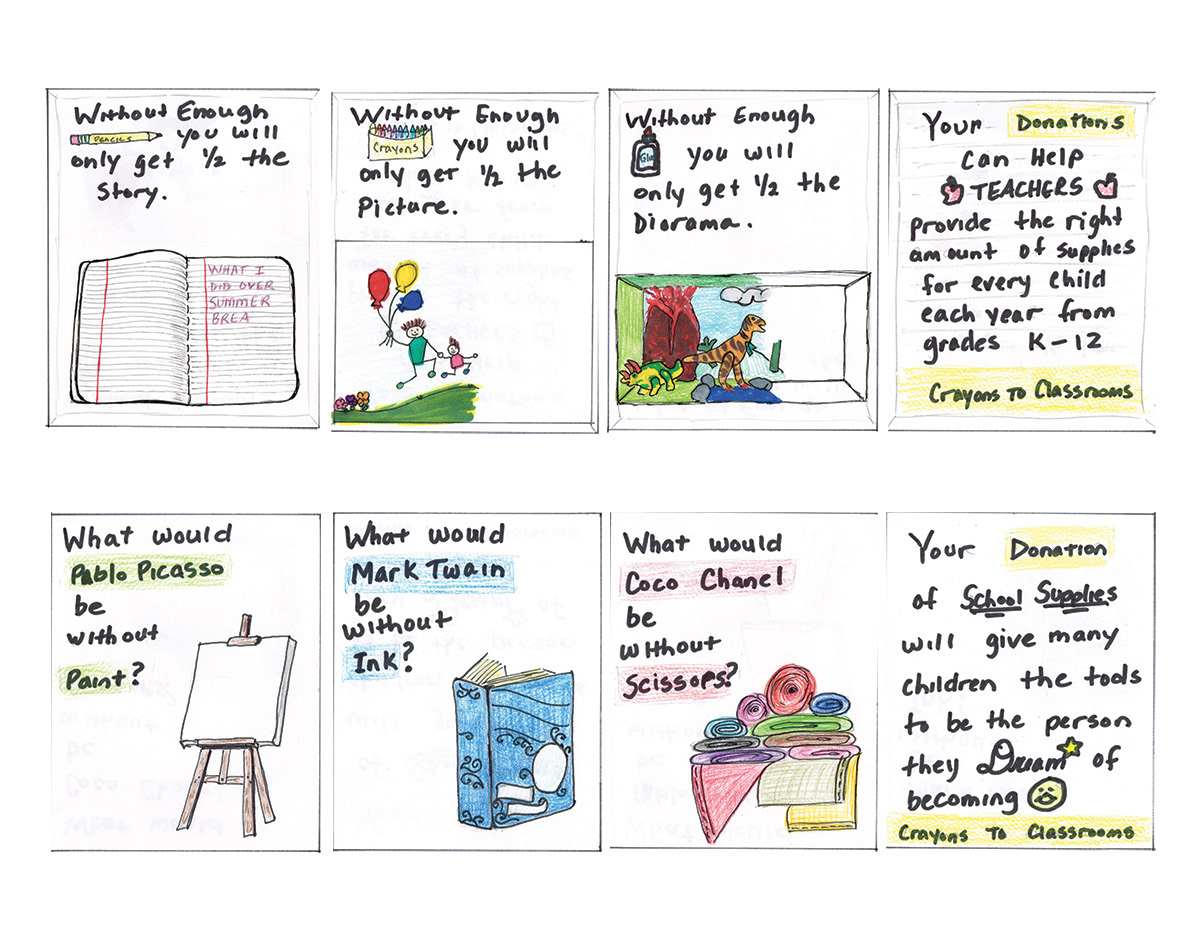 Without Enough
PENCILS you will
only get 1/2 the
Story.
WHAT I
DID OVER
SUMMER
BREA
Without Enough
Crayons you will
only get 1/2 the
Picture.
Without Enough
Glu you will
only get 1/2 the
Diorama.
Your Donations
Can Help
TEACHERS
provide the right
amount of supplies
for every child
each year from
grades K-12
Crayons To Classrooms
What would
Pablo Picasso
be
without
Paint?
What would
Mark Twain
be
without
Ink?
What would
Coco Chanel
be
without
Scissors?
Your Donation
of School Supplies
will give many
children the tools
to be the person
they Dream of
becoming
Crayons To Classrooms